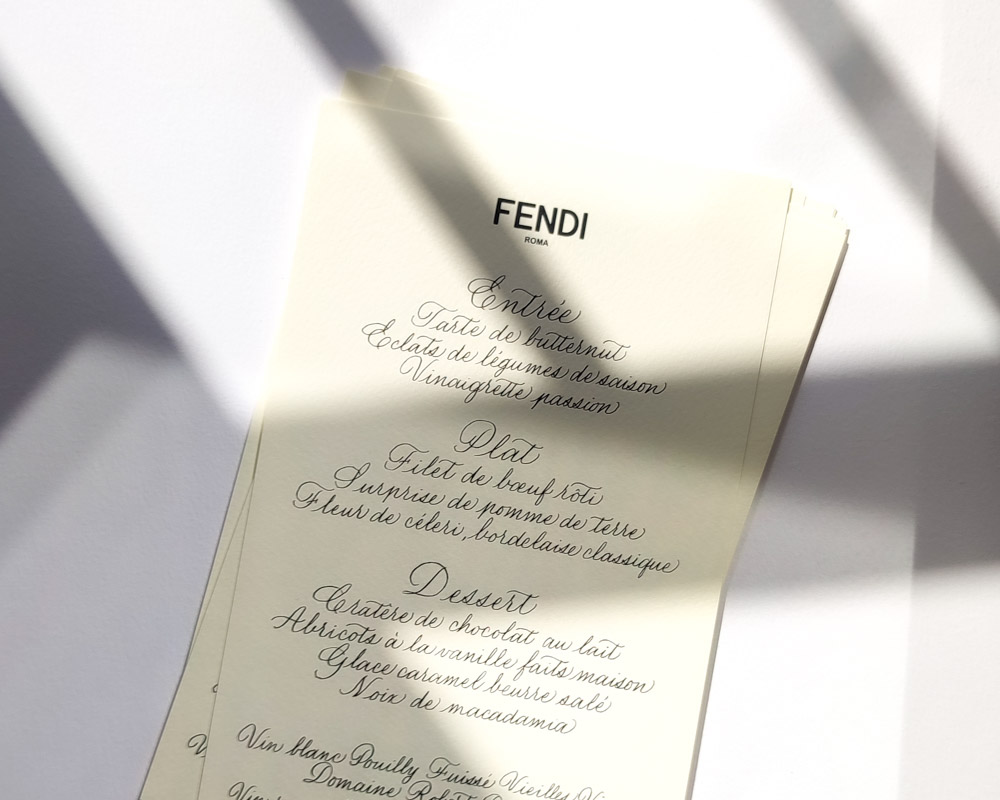 FENDI
ROMA
Entrée
Tarte de butternut
Eclats de légumes de saison
Vinaigrette passion
Plat
Filet de bœuf rôti
Surprise de pomme de terre
Fleur de céleri, bordelaise classique
Dessert
Cratère de chocolat au lait
Abricots à la vanille faits maison
Glace caramel beurre salé
Noix de macadamia
Vin blanc Pouilly Fuissé Vieilles
Domaine